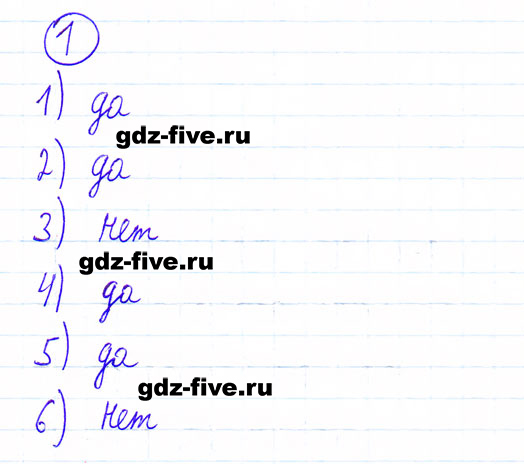 1
1) да
gdz-five.ru
2) да
3) нет
gdz-five.ru
4) да
5) да
gdz-five.ru
6) нет